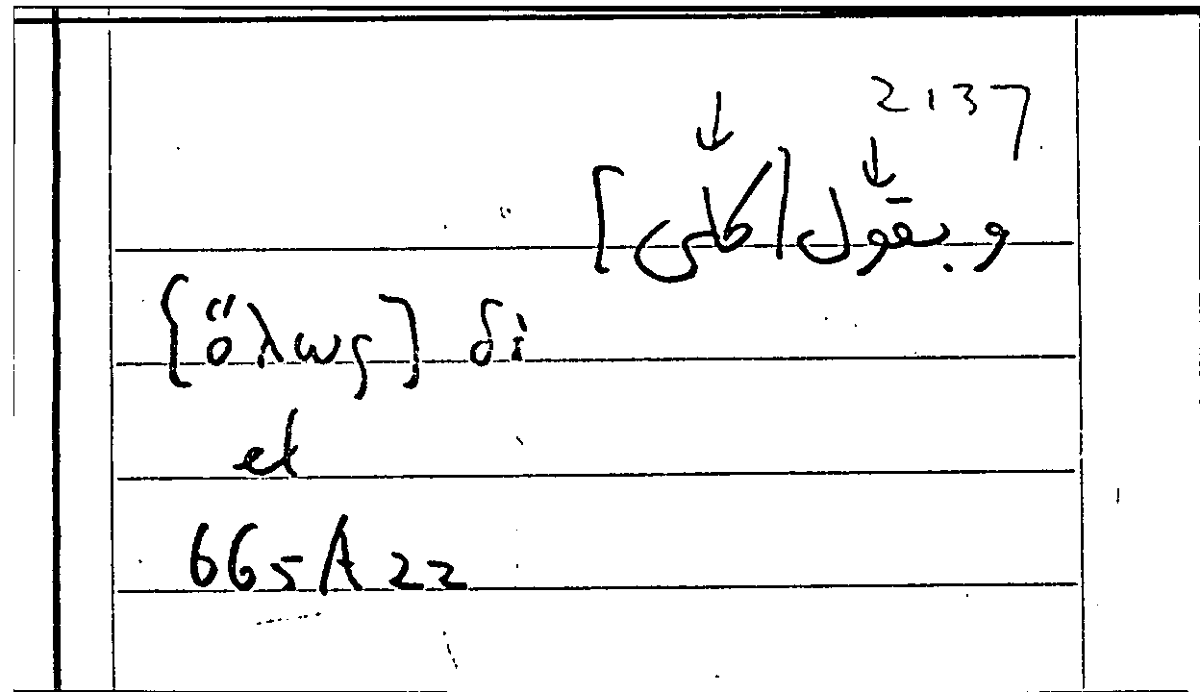 2137
و بقول [كلى]
[ὅλως] δὲ
et
665A22